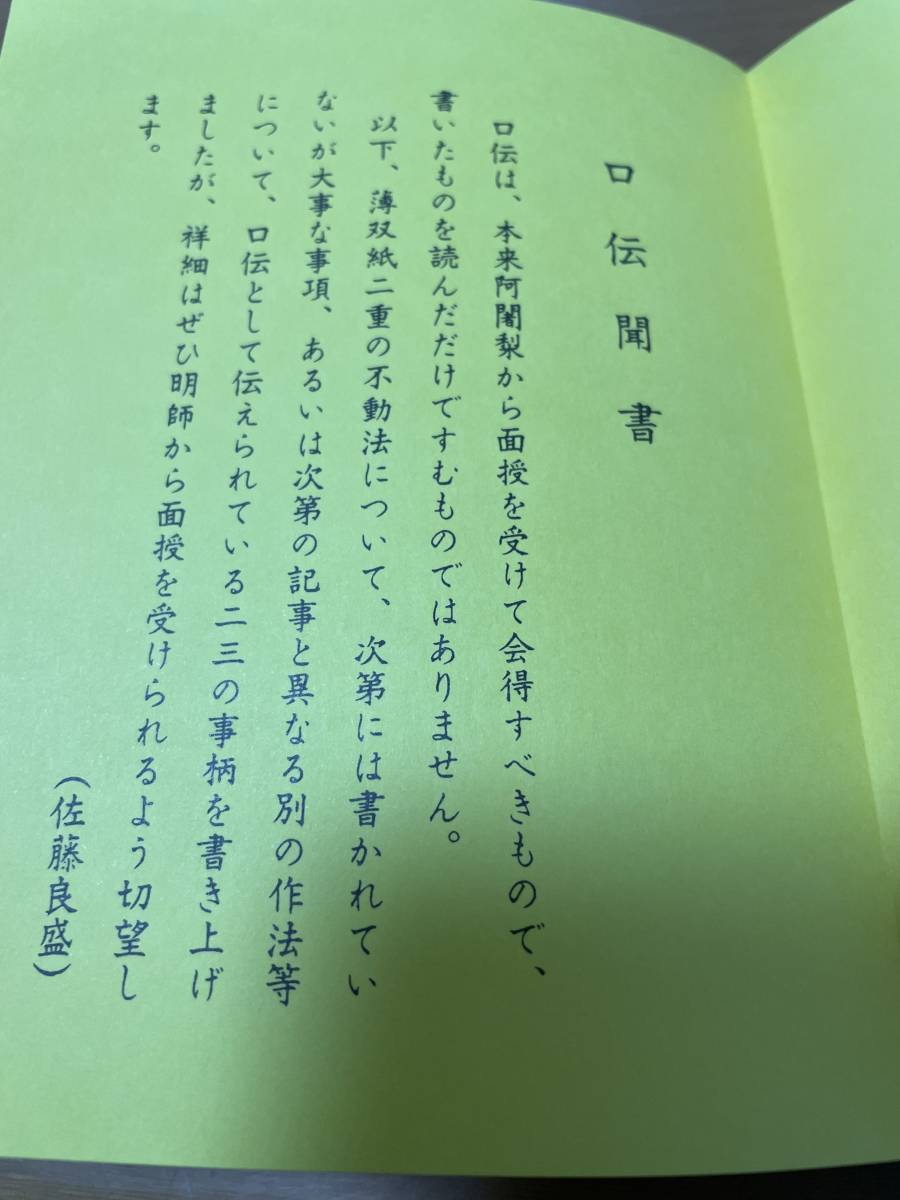 口伝聞書
口伝は、本来阿闍梨から面授を受けて会得すべきもので、
書いたものを読んだだけですむものではありません。
以下、薄双紙二重の不動法について、次第には書かれてい
ないが大事な事項、あるいは次第の記事と異なる別の作法等
について、口伝として伝えられている二三の事柄を書き上げ
ましたが、祥細はぜひ明師から面授を受けられるよう切望し
ます。
(佐藤良盛)